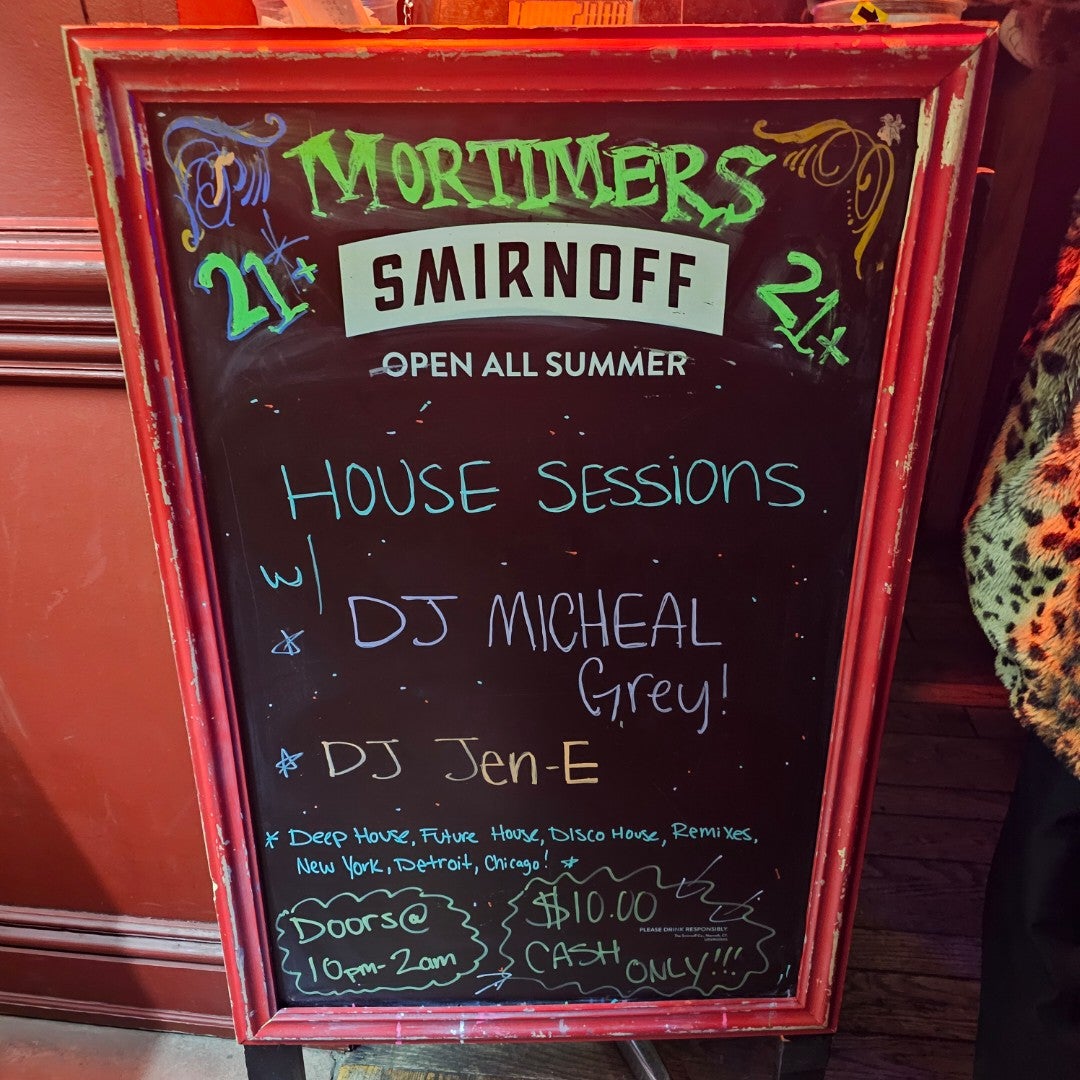 2000
MORTIMERS
21+
SMIRNOFF
21+
OPEN ALL SUMMER
HOUSE SESSIONS
w/
DJ MICHEAL
Grey!
DJ Jen-E
* Deep House, Future House, Disco House, Remixes,
New York, Detroit, Chicago! *
Doors@
10pm-2am
$10.00
CASH ONLY!!!
PLEASE DRINK RESPONSIBLY.